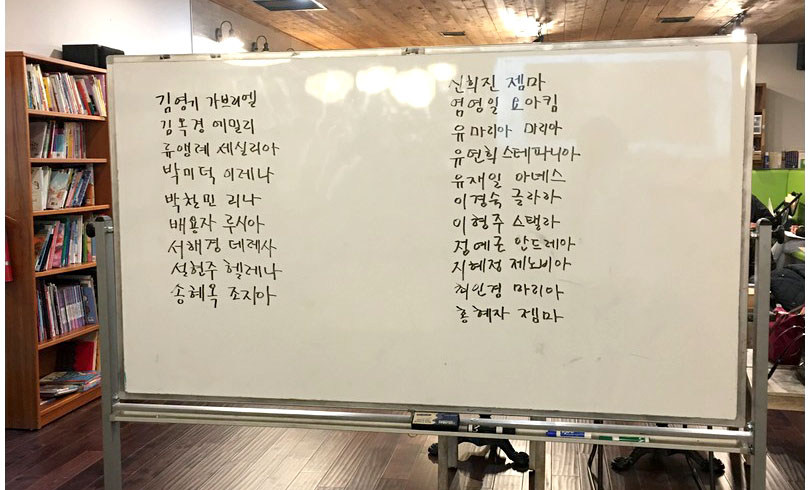 김영기 가브리엘
김옥경 에밀리
류앵례 세실리아
박미덕 이레나
박찬민 리나
배용자 루시아
서해경 데레사
설현주 헬레나
송혜옥 조지아
신희진 젬마
염영일 요아킴
유마리아 마리아
유연희 스테파니아
유재일 아네스
이경숙 글라라
이형주 스텔라
정예근 안드레아
지혜정 제노비아
최인경 마리아
홍혜자 젬마